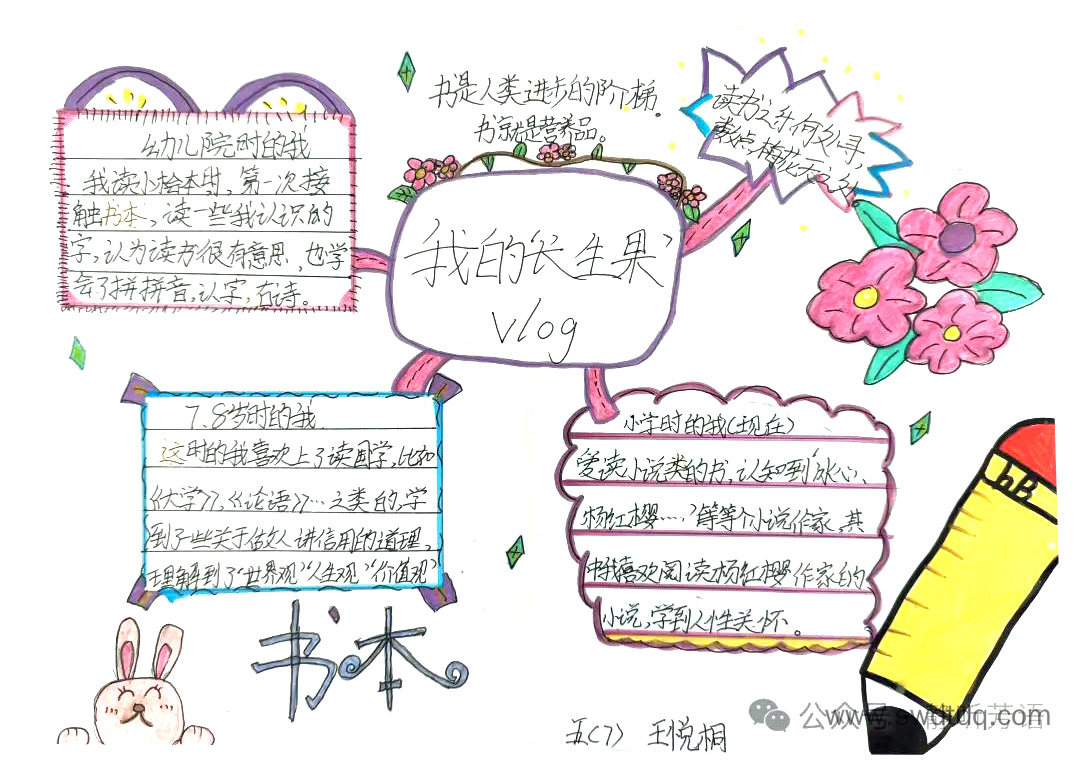 书是人类进步的阶梯.
书就是营养品。
读书之乐何处寻,
数点梅花天
我的“长生果”
vlog
幼儿院时的我
我读小绘本里,第一次接
触书本,读一些我认识的
字,认为读书很有意思,也学
会了拼拼音,认字,古诗。
7.8岁时的我
这时的我喜欢上了读国学,比如
《大学》,《论语》…之类的,学
到了一些关于做人讲信用的道理,
理解到了“世界观”“人生观”“价值观”
小学时的我(现在)
爱读小说类的书,认知到“冰心,
杨红樱……”等等个小说作家,其
中我喜欢阅读杨红樱作家的
小说,学到人性关怀。
书本
hB
五(7) 王悦桐
公众号
www.swdtdq.com
芳语